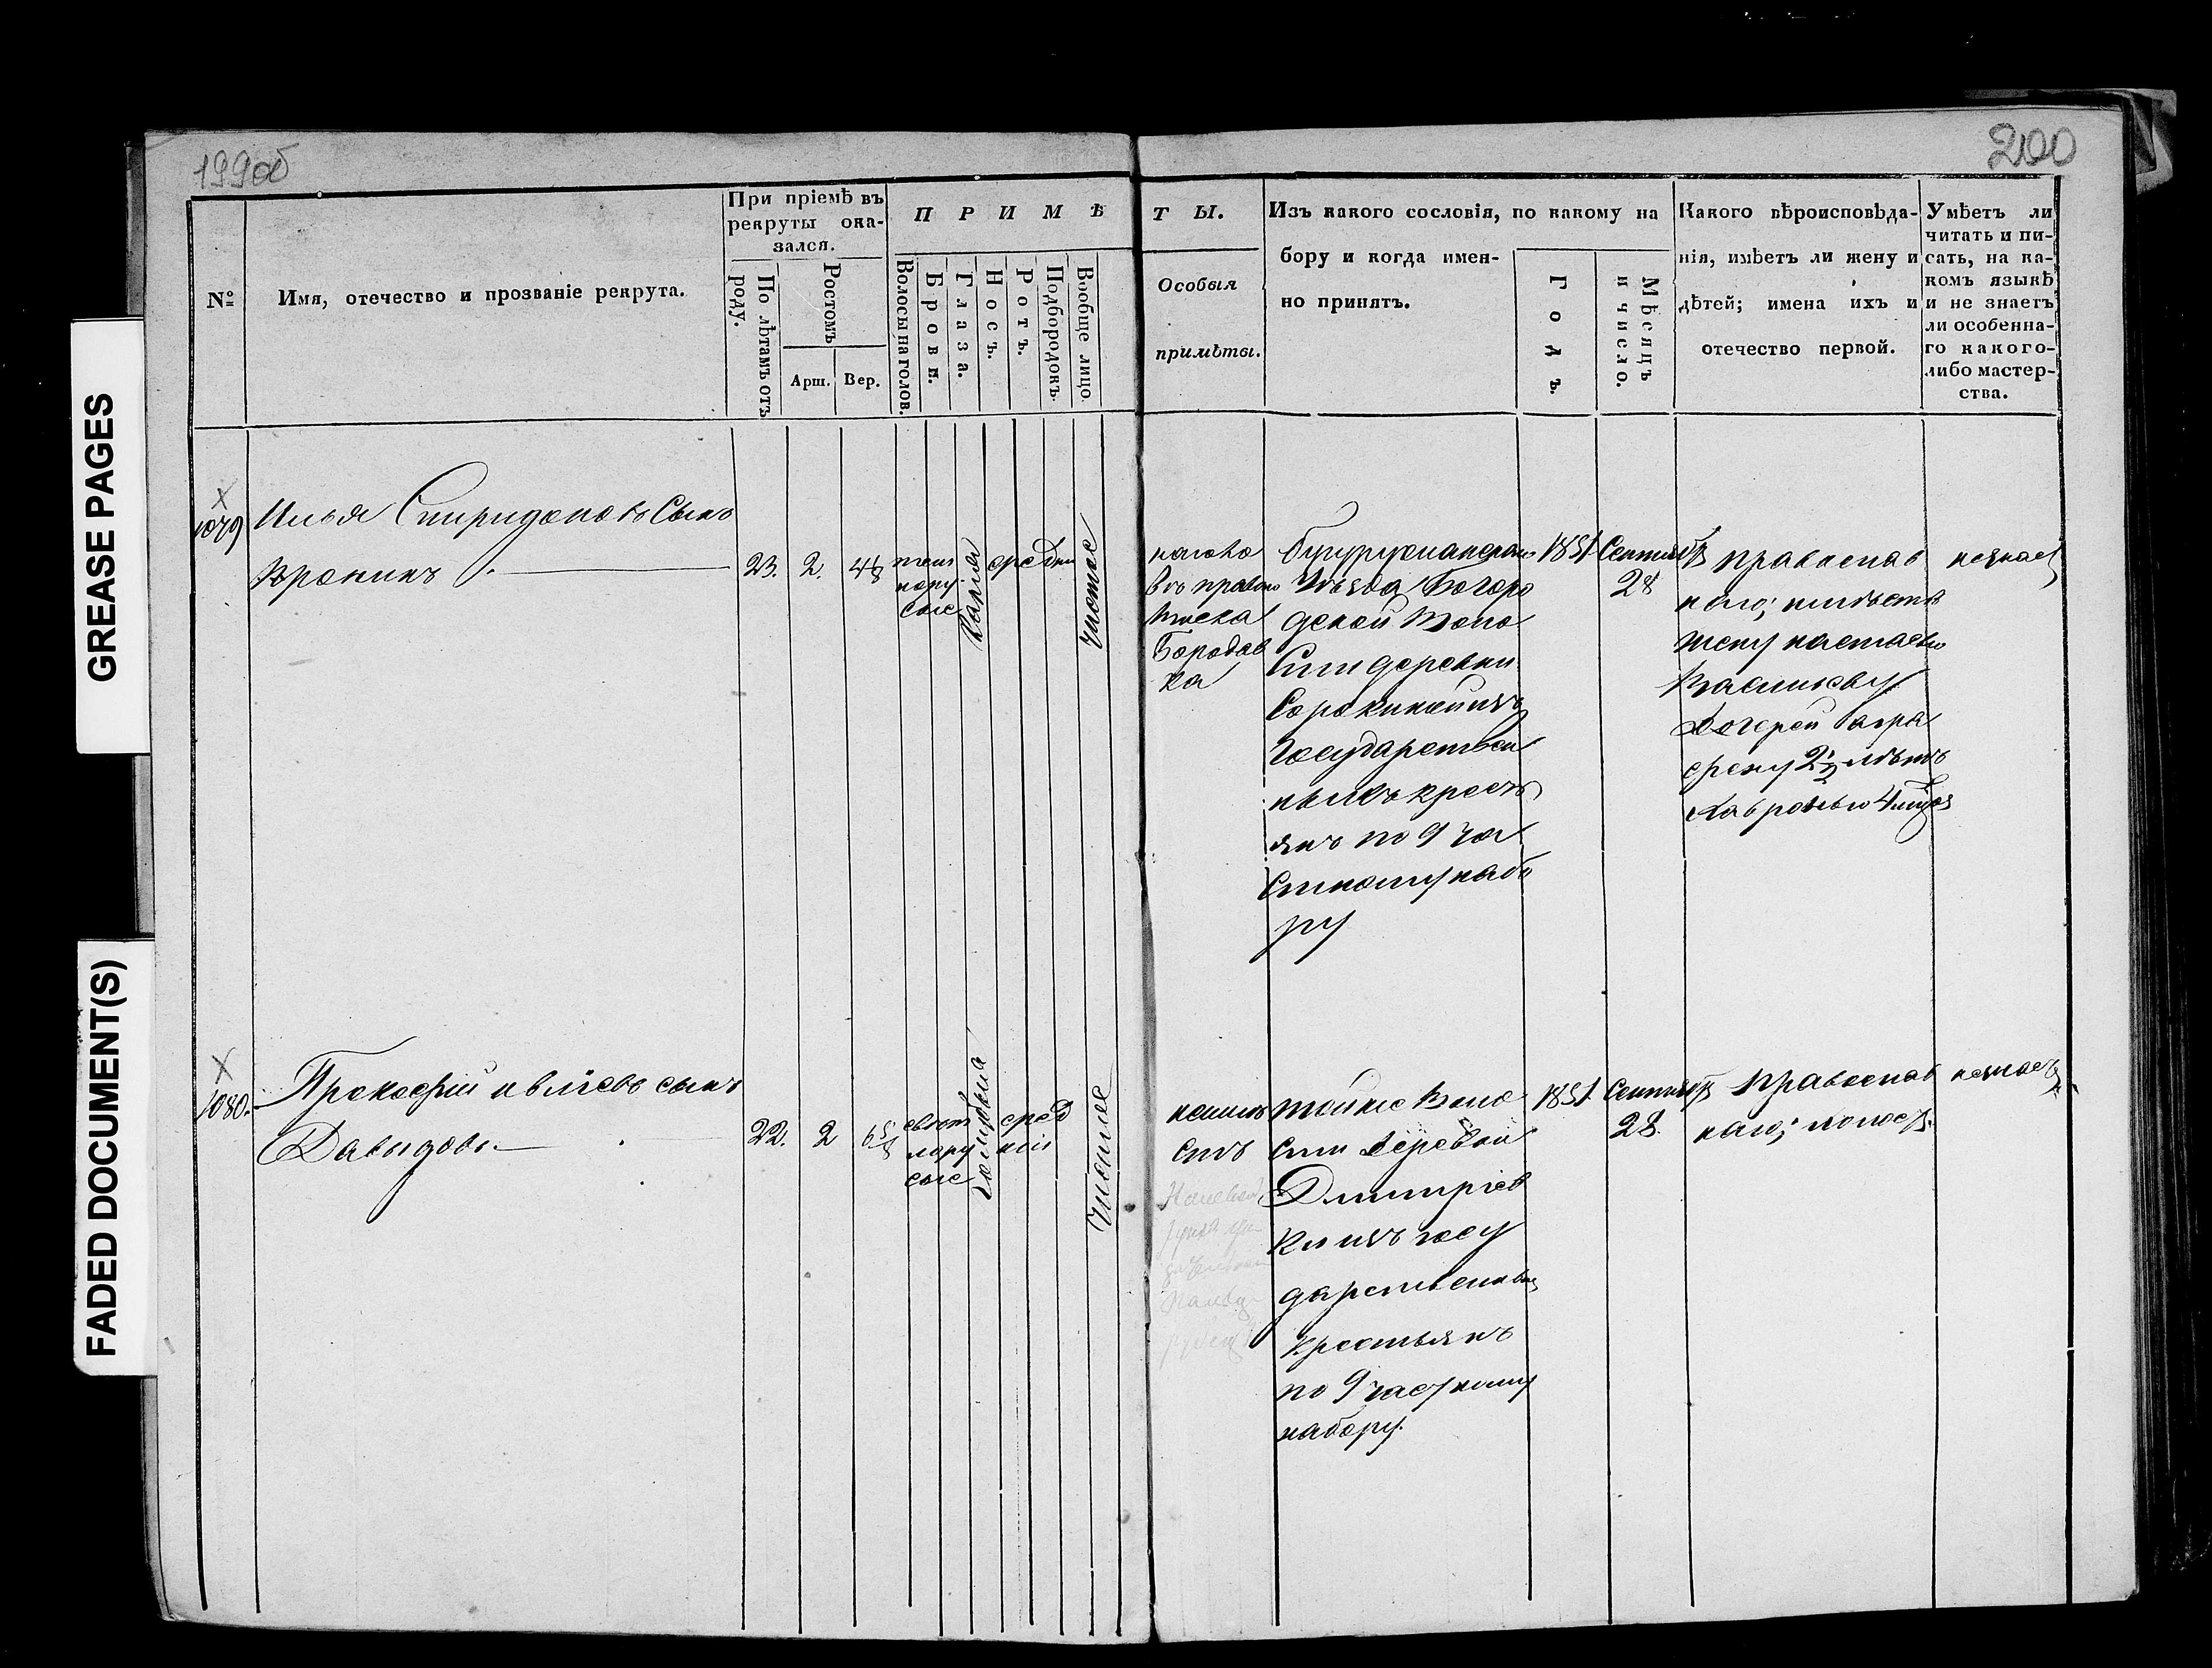 199об
200
GREASE PAGES
FADED DOCUMENT(S)
№
Имя, отечество и прозваніе рекрута.
При пріемѣ въ
рекруты ока-
зался.
По лѣтамъ отъ
роду.
Ростомъ
Арш. Вер.
ПРИМѢ
Волосы на голов.
Брови.
Глаза.
Носъ.
Ротъ.
Подбородокъ.
Вообще лицо.
ТЫ.
Особыя
примѣты.
Изъ какого сословія, по какому на
бору и когда имен-
но принятъ.
Годъ.
Мѣсяцъ
и число.
Какого вѣроисповѣда-
нія, имѣетъ ли жену и
дѣтей; имена ихъ и
отечество первой.
Умѣетъ ли
читать и пи-
сать, на ка-
комъ языкѣ
и не знаетъ
ли особенна-
го какого-
либо мастер-
ства.
1079
Илья Спиридоновъ Сынъ
Пронинъ
23. 2. 4 1/8
темно
ру
сые
Каріе
средніи
Чистое
Бородав
ка
Бугурусланскаго
Уѣзда Богоро
дской Воло
сти деревни
Сорокиной изъ
Государствен
ныхъ кресть
янъ по 9 ча
стному набо
ру
1851
Сентября
28
православ
наго; имѣетъ
жену настасью
Васильеву
дочерей Агра
фену 2 1/2 лѣтъ
незнаетъ
1080.
Прокофій ивліевъ сынъ
Давыдовъ
22. 2 6 5/8
свѣт
лору
сые
голубыя
сред
ніи
Чистое
тойже Воло
сти деревни
Дмитріев
ки изъ госу
дарственныхъ
крестьянъ
по 9 частному
набору.
1851.
Сентября
28.
православ
наго; холостъ.
незнаетъ